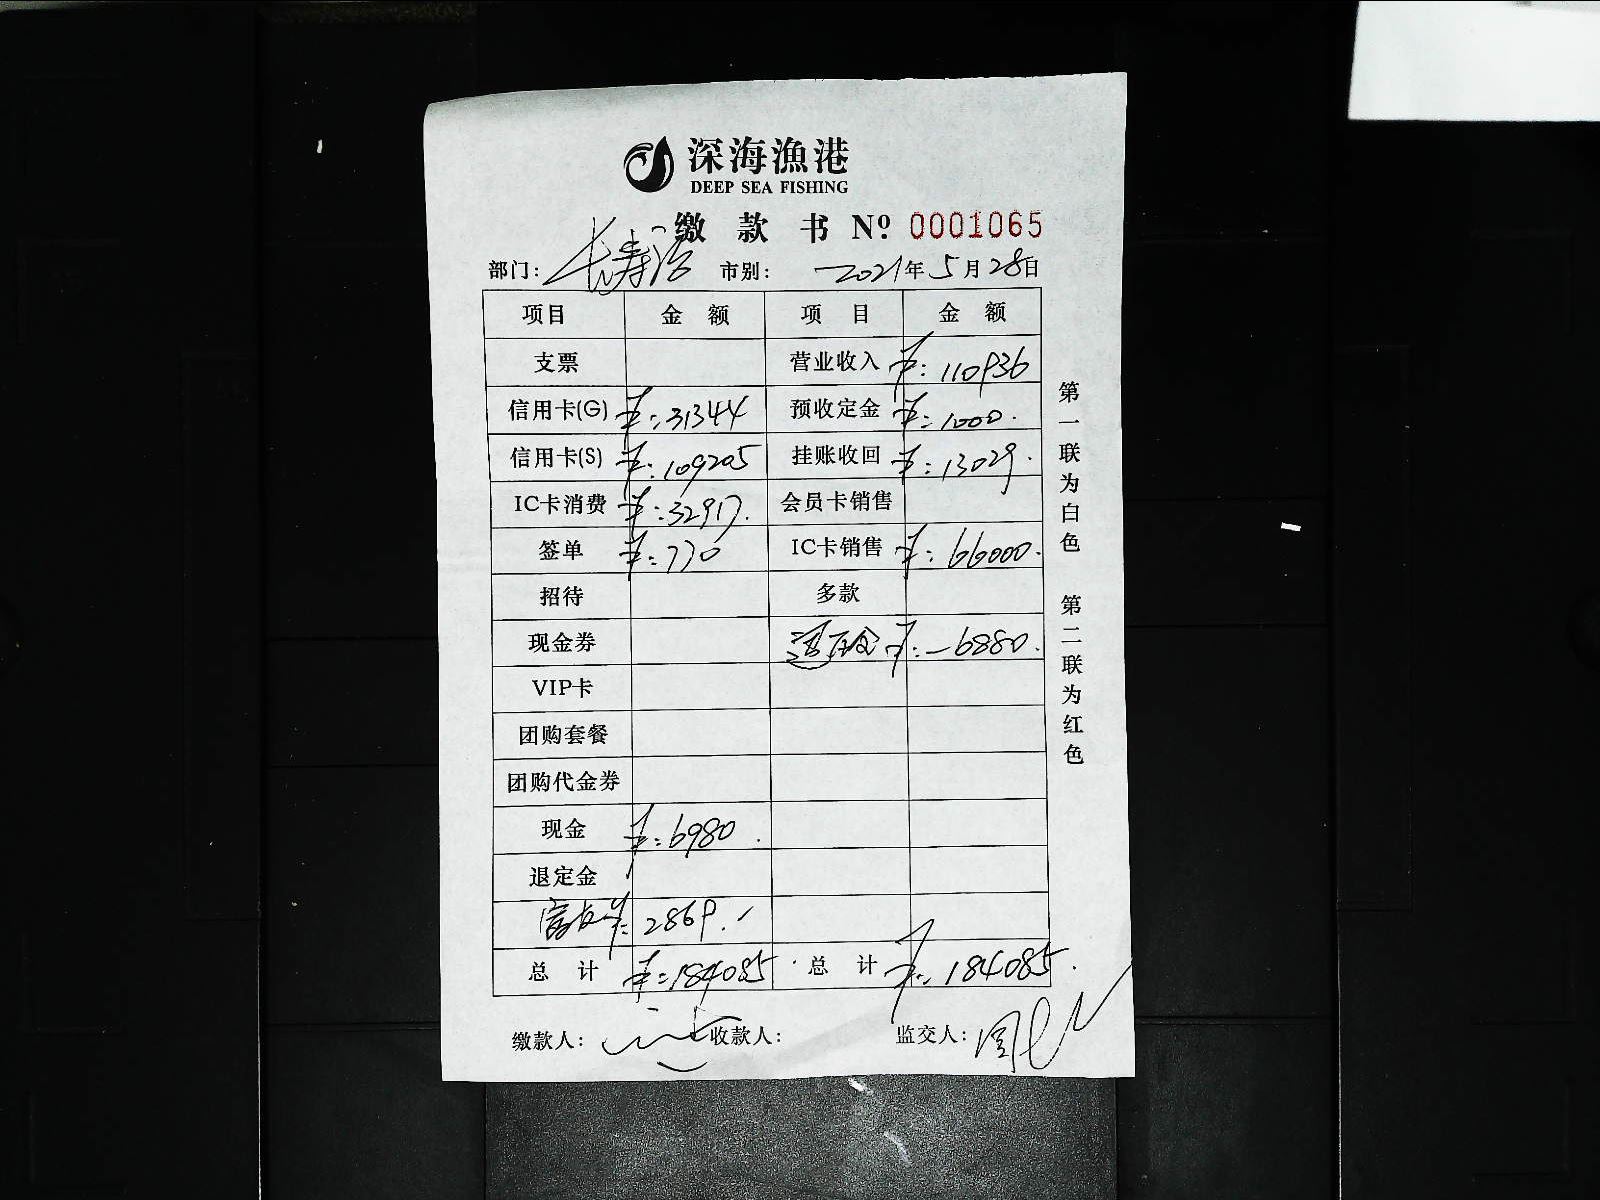 深海漁港
DEEP SEA FISHING
缴款书 Nº 0001065
部门: 长寿路 市别: 2021年5月28日
项目 金额 项目 金额
支票 营业收入 ¥:110936
信用卡(G) ¥:31344 预收定金 ¥:1000.
信用卡(S) ¥:109205 挂账收回 ¥:13029.
IC卡消费 ¥:32917. 会员卡销售
签单 ¥:770 IC卡销售 ¥:66000.
招待 多款
现金券 ¥:-6880.
VIP卡
团购套餐
团购代金券
现金 ¥:6980.
退定金
¥:2869.
总计 ¥:184085 总计 ¥:184085.
缴款人: 收款人: 监交人:
第一联为白色 第二联为红色